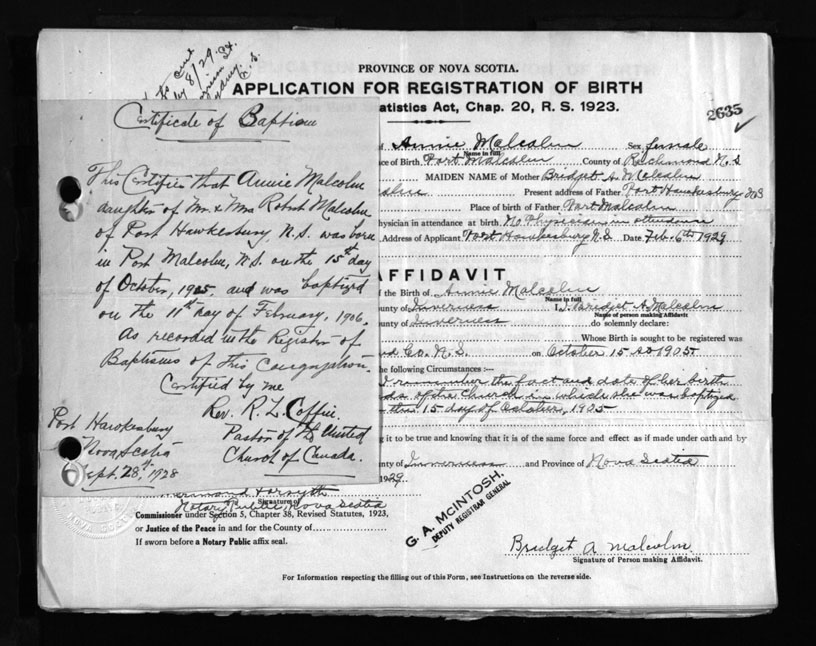 8/29.
PROVINCE OF NOVA SCOTIA.
APPLICATION FOR REGISTRATION OF BIRTH
atistics Act, Chap. 20, R. S. 1923.
2635
of Annie Malcolm Sex female
Name in full
ce of Birth Port Malcolm County of Richmond N.S
MAIDEN NAME of Mother Bridget A. Malcolm
Present address of Father Port Hawkesbury N.S
Place of birth of Father Port Malcolm
hysician in attendance at birth No Physician in attendance
Address of Applicant Port Hawkesbury N.S Date Feb. 6th 1929
AFFIDAVIT
f the Birth of Annie Malcolm
Name in full
unty of Inverness I, Bridget A Malcolm
Name of person making Affidavit
unty of Inverness do solemnly declare:
Whose Birth is sought to be registered was
Co. N.S. on October 15 1905
he following Circumstances :—
I remember the fact and date of her birth
of the Church in which she was baptized
the 15 day of October, 1905
g it to be true and knowing that it is of the same force and effect as if made under oath and by
nty of Inverness and Province of Nova Scotia
1929
Forsyth
Signature of
Notary Public Nova Scotia
Commissioner under Section 5, Chapter 38, Revised Statutes, 1923,
or Justice of the Peace in and for the County of
If sworn before a Notary Public affix seal.
G. A. McINTOSH.
DEPUTY REGISTRAR GENERAL
Bridget A Malcolm
Signature of Person making Affidavit.
For Information respecting the filling out of this Form, see Instructions on the reverse side.
Certificate of Baptism
This Certifies that Annie Malcolm
daughter of Mr. & Mrs Robert Malcolm
of Port Hawkesbury N.S. was born
in Port Malcolm, N.S. on the 15th day
of October, 1905. and was baptized
on the 11th day of February, 1906.
As recorded in the Register of
Baptisms of this Congregation.
Certified by me
Rev. R. L. Coffin.
Pastor of the United
Church of Canada.
Port Hawkesbury
Nova Scotia
Sept. 28th 1928